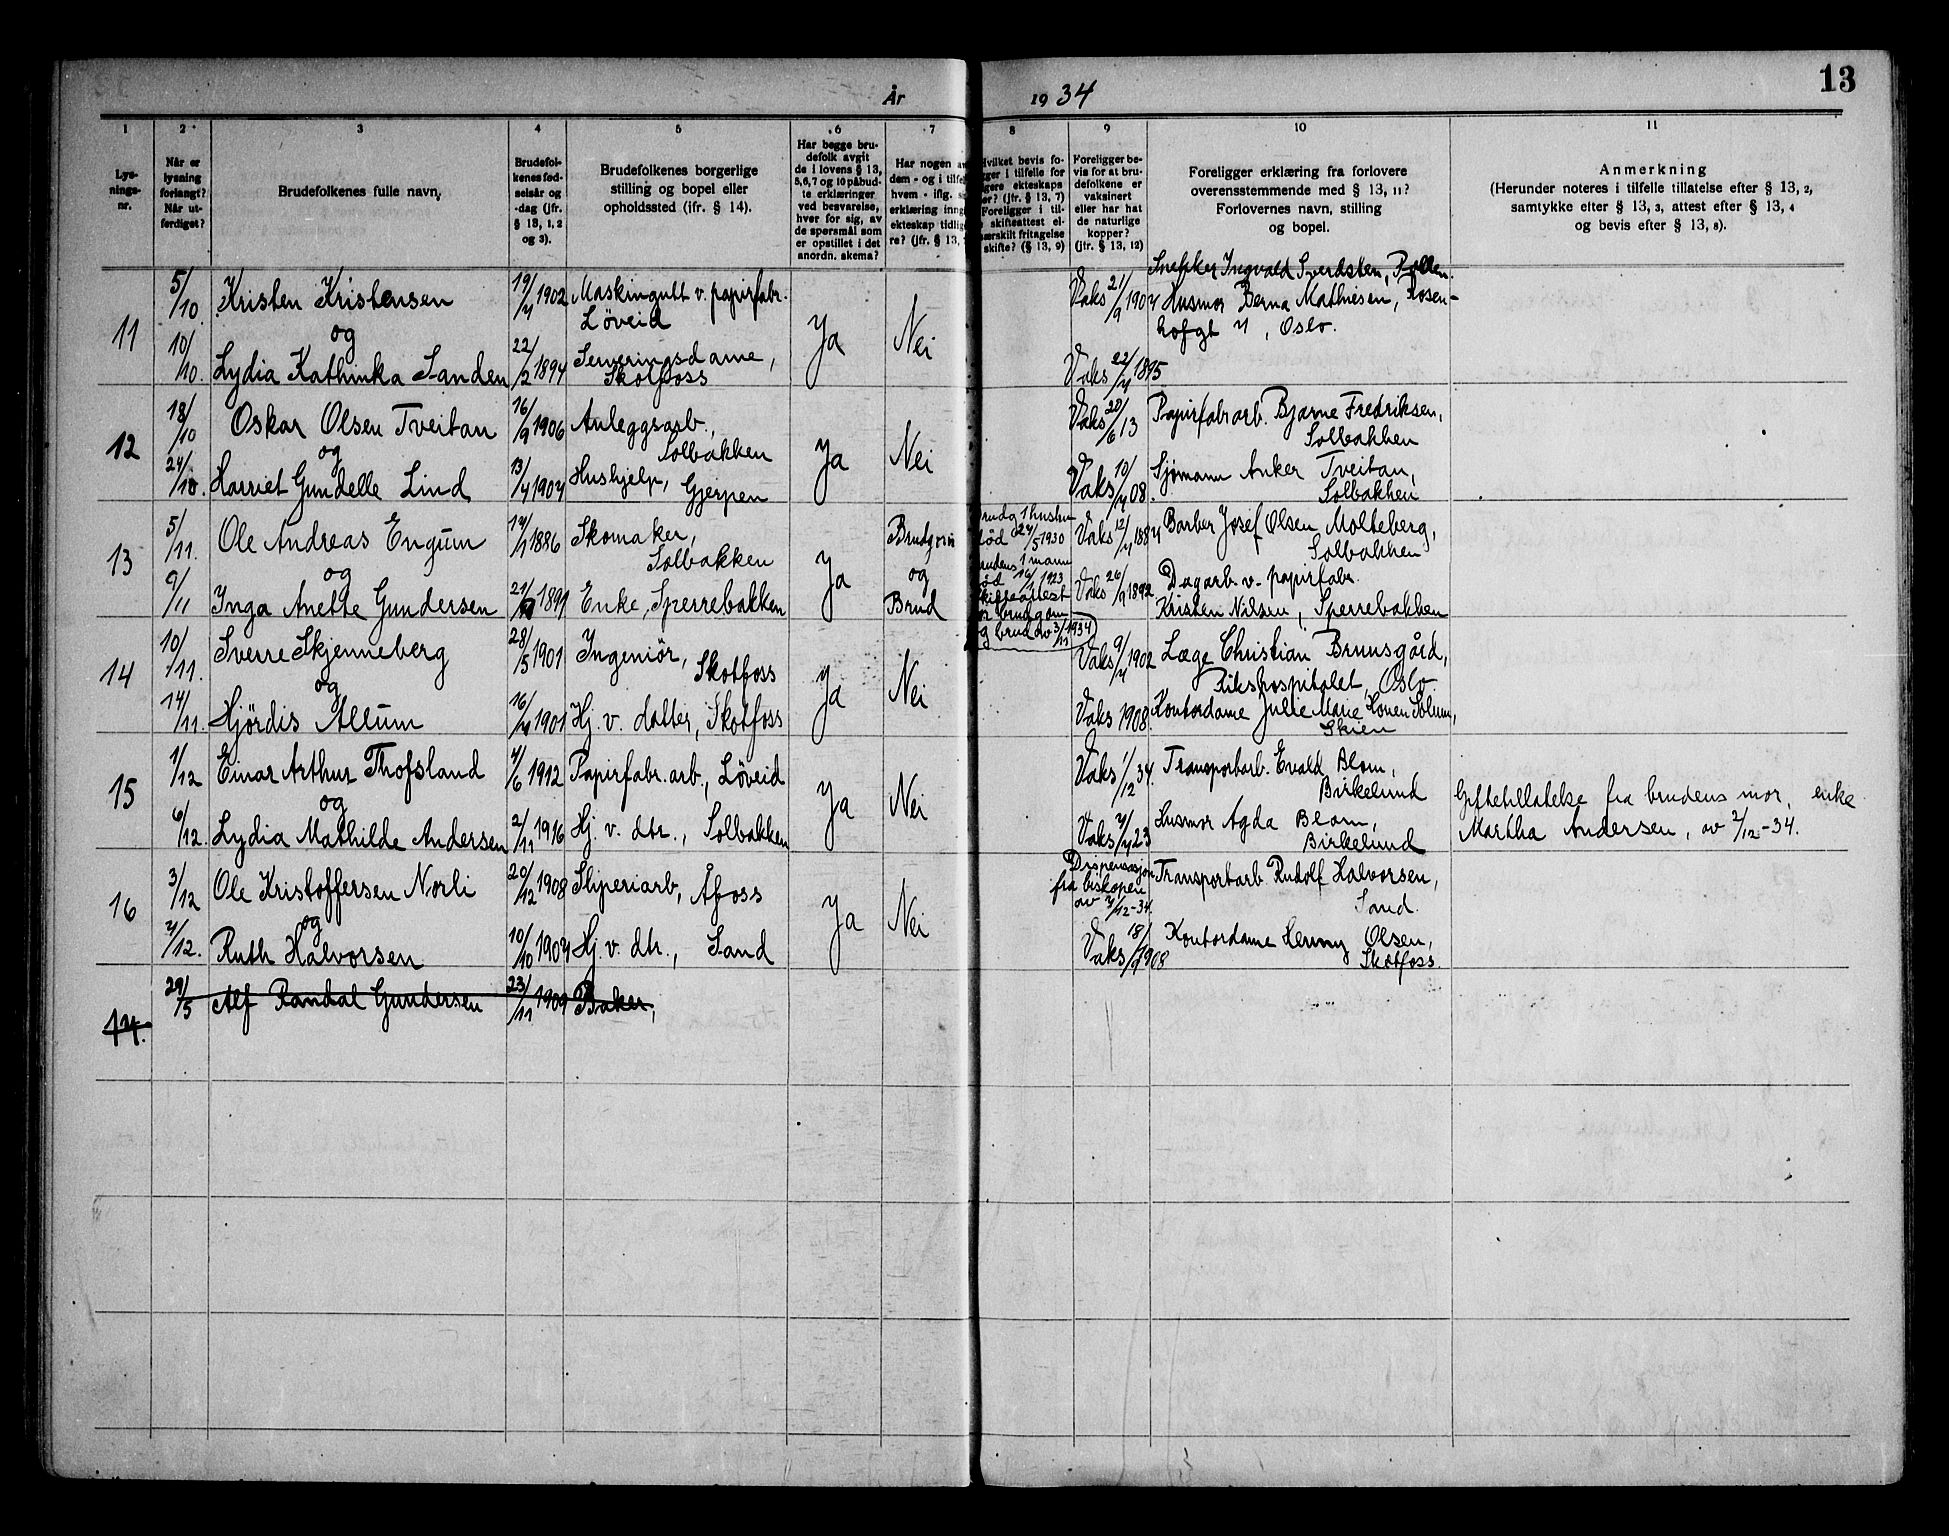 13
År 1934
1 2 3 4 5 6 7 8 9 10 11
Lys-
nings-
nr.
Når er
lysning
forlangt?
Når ut-
ferdiget?
Brudefolkenes fulle navn,
Brudefol-
kenes fød-
selsår og
-dag (jfr.
§ 13, 1, 2
og 3).
Brudefolkenes borgerlige
stilling og bopel eller
opholdssted (ifr. § 14).
Har begge bru-
defolk avgit
de i lovens § 13,
5,6,7 og 10 påbud-
te erklæringer
ved besvarelse,
hver for sig, av
de spørsmål som
er opstillet i det
anordn. skema?
Har nogen av
dem - og i tilfel
hvem - iflg. s
erklæring inng
ekteskap tidlig
re? (jfr. § 13,
Hvilket bevis fo-
gger i tilfelle for
gere ekteskaps
er? (jfr. § 13, 7)
Foreligger i til-
skifteattest el-
særskilt fritagelse
skifte? (§ 13, 9)
Foreligger be-
vis for at bru-
defolkene er
vaksinert
eller har hat
de naturlige
kopper?
(jfr. § 13, 12)
Foreligger erklæring fra forlovere
overensstemmende med § 13, 11?
Forlovernes navn, stilling
og bopel.
Anmerkning
(Herunder noteres i tilfelle tillatelse efter § 13, 2,
samtykke efter § 13, 3, attest efter § 13, 4
og bevis efter § 13, 8).
11
5/10
10/10.
Kristen Kristensen
og
Lydia Kathinka Sanden
19/4 1902
22/2 1894
Maskingutt v. papirfabr.
Löveid
Serveringsdame,
Skotfoss
Ja
Nei
Vaks 21/9 1904
Vaks 22/4 1895
Snekker Ingvald Sverdsten,
Husmor Berna Mathiesen, Rosen-
hofgt 4, Oslo.
12
18/10
24/10.
Oskar Olsen Tveitan
og
Harriet Gundelle Lind
16/9 1906
13/4 1904
Anleggsarb.,
Solbakken
Hushjelp, Gjerpen
Ja
Nei
Vaks 20/6 13
Vaks 10/4 08.
Papirfabrarb. Bjarne Fredriksen,
Solbakken
Sjømann Anker Tveitan,
Solbakken
13
5/11.
9/11
Ole Andreas Engum
og
Inga Anette Gundersen
14/1 1886
1891
Skomaker,
Solbakken
Enke, Sperrebakken
Ja
Brudgom
og
Brud
rudg 1 hustru
død 24/5 1930
rudens 1 mann
død 16/1 1923
skifteattest
or brudgom
og brud av 3/11 1934
Vaks 12/4 1884
Vaks 26/9 1892
Barber Josef Olsen Molteberg,
Solbakken
Dagarb. v. papirfabr.
Kristen Nilsen, Sperrebakken
14
10/11.
14/11.
Sverre Skjenneberg
og
Hjördis Allum
28/5 1901
16/4 1901
Ingeniör, Skotfoss
Hj. v. datter, Skotfoss
Ja
Nei
Vaks 9/4 1902
Vaks 1908.
Læge Christian Bruusgård,
Rikshospitalet, Oslo.
Kontordame Julie Marie Konen Solum,
Skien
15
1/12
6/12.
Einar Arthur Thofsland
og
Lydia Mathilde Andersen
4/6 1912
2/11 1916
Papirfabr.arb., Löveid
Hj. v. dtr., Solbakken
Ja
Nei
Vaks 1/12 34.
Vaks 4/4 23
Transportarb. Evald Blom,
Birkelund
Husmor Agda Blom,
Birkelund
Giftetillatelse fra brudens mor, enke
Martha Andersen, av 2/12-34.
16
3/12
4/12.
Ole Kristoffersen Norli
og
Ruth Halvorsen
20/12 1908
10/10 1904
Sliperiarb, Åfoss
Hj. v. dtr., Sand
Ja
Nei
Dispensasjon
fra biskopen
av 4/12-34.
Vaks 18/9 1908
Transportarb. Rudolf Halvorsen,
Sand.
Kontordame Henny Olsen,
Skotfoss.
14.
29/5
Alf Randal Gundersen
23/11 1909
Baker,